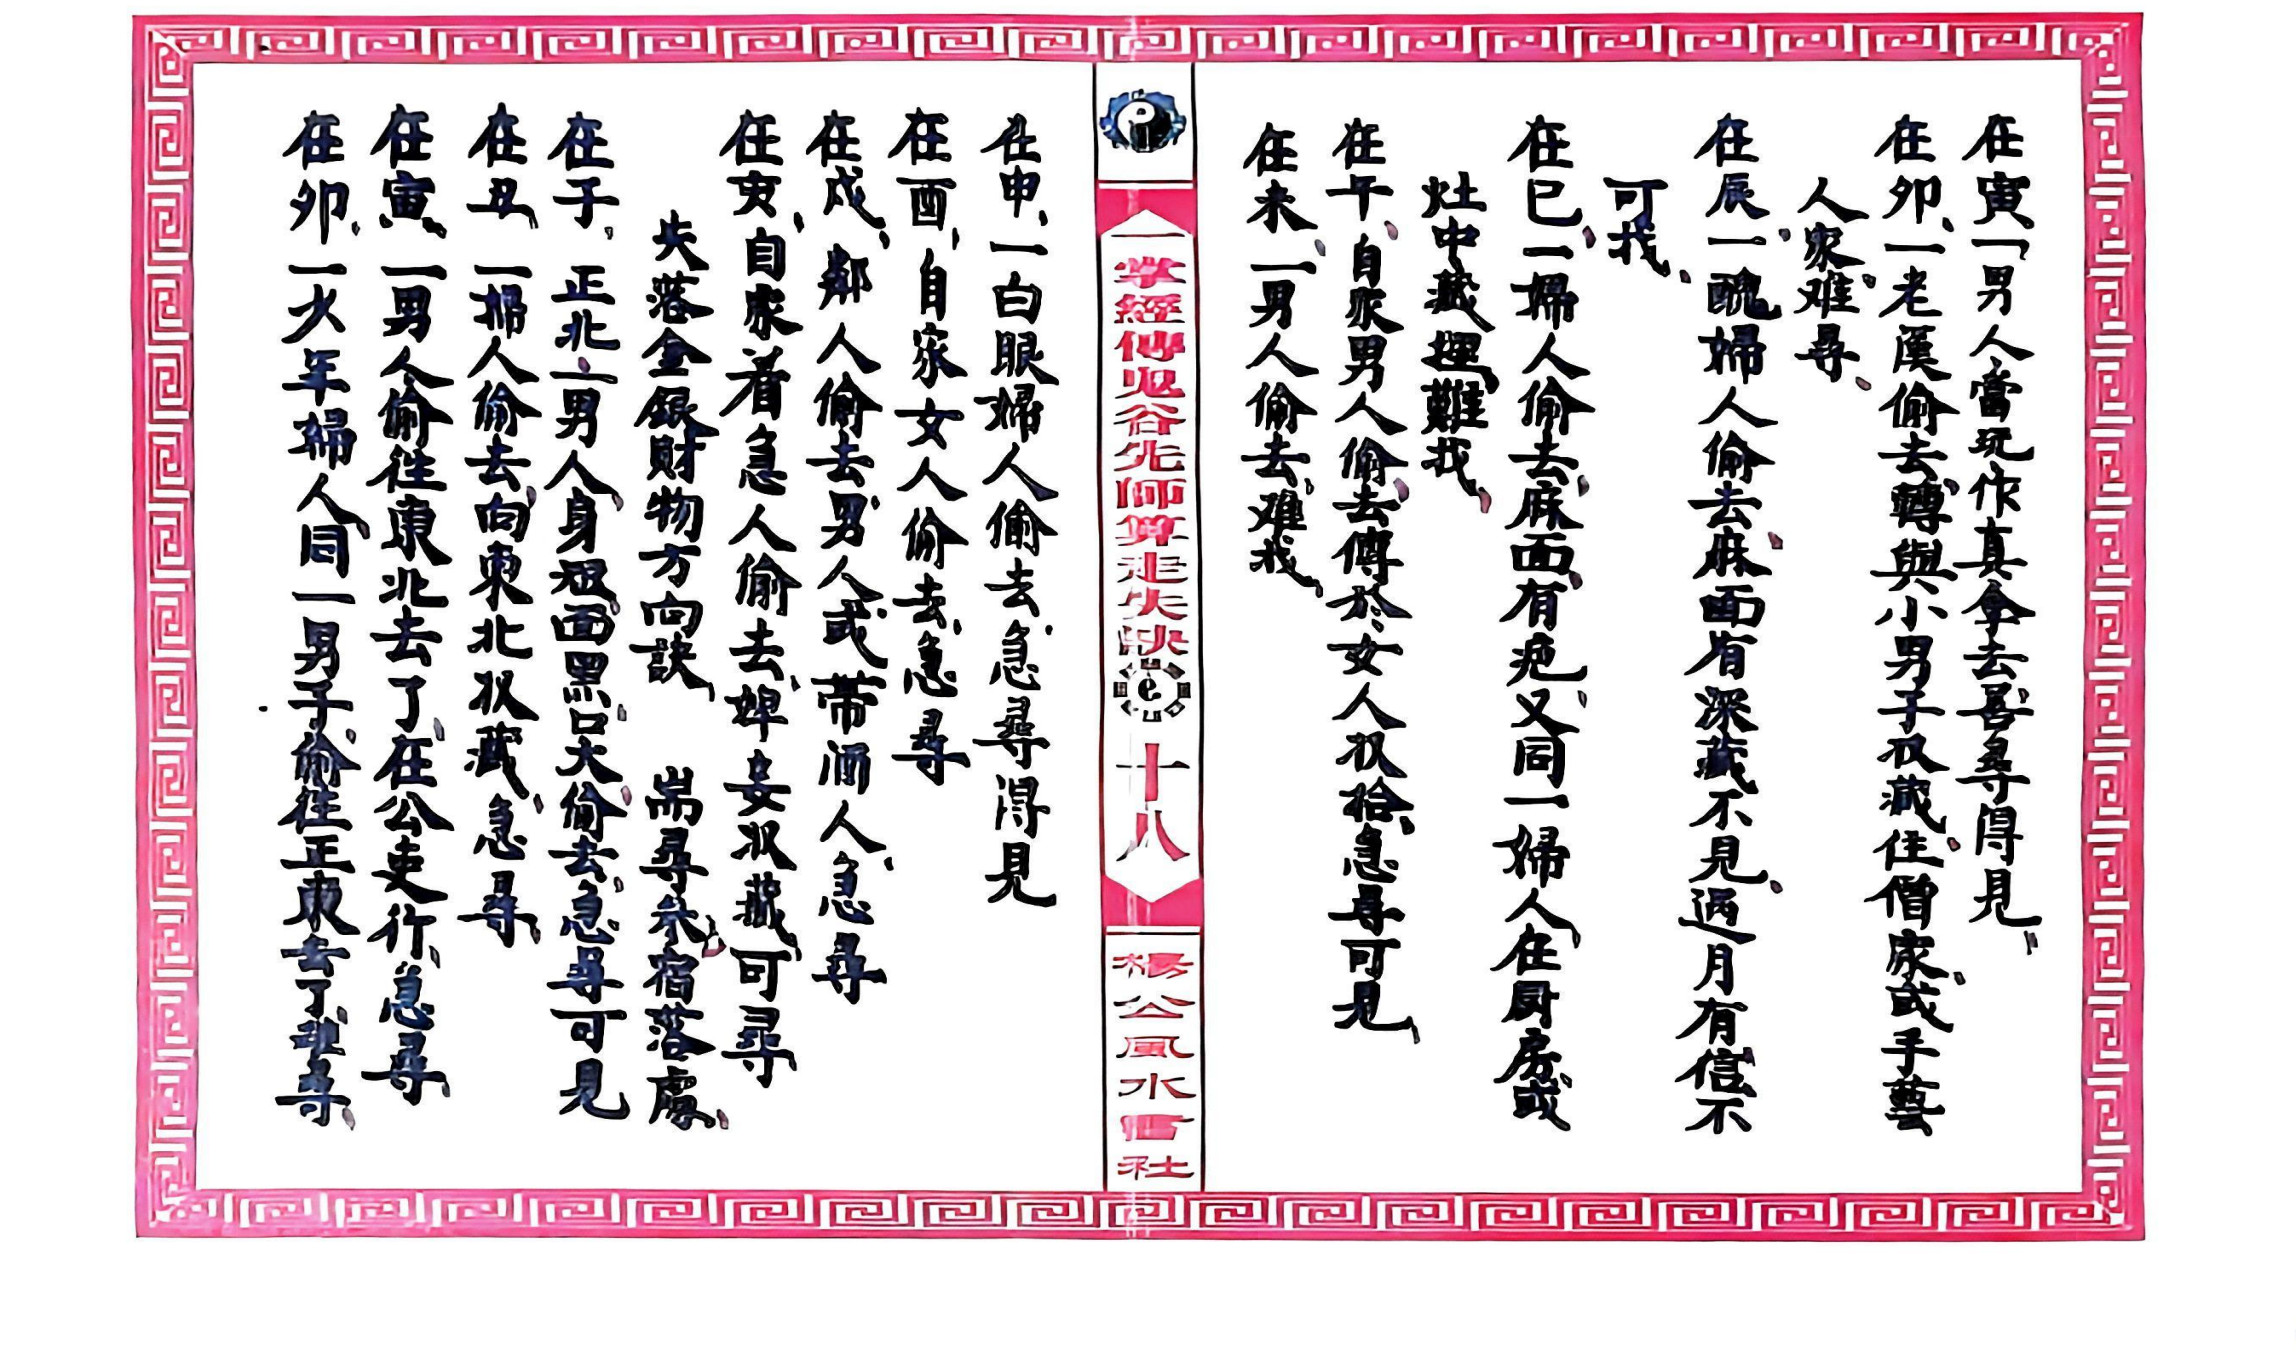 在寅一男人當玩作真拿去喜尋得見
在卯一老漢偷去轉與小男子收藏住僧家或手藝
人家难尋
在辰一醜婦人偷去麻面有深藏不見過月有信不
可找
在巳一婦人偷去麻面有疤又同一婦人在厨房或
灶中藏埋難找
在午自家男人偷去傳於女人收拾急尋可見
在未一男人偷去难找
一掌經傳鬼谷先師算走失訣
十八
楊公風水書社
在申一白眼婦人偷去急尋得見
在酉自家女人偷去急尋
在戌鄰人偷去男人或帶酒人急尋
在亥自家着急人偷去婢妾收藏可尋
失落金銀財物方向訣 耑尋参宿落處
在子正北一男人身短面黑口大偷去急尋可見
在丑一婦人偷去向東北收藏急尋
在寅一男人偷往東北去了在公吏行急尋
在卯一少年婦人同一男子偷往正東去了难尋